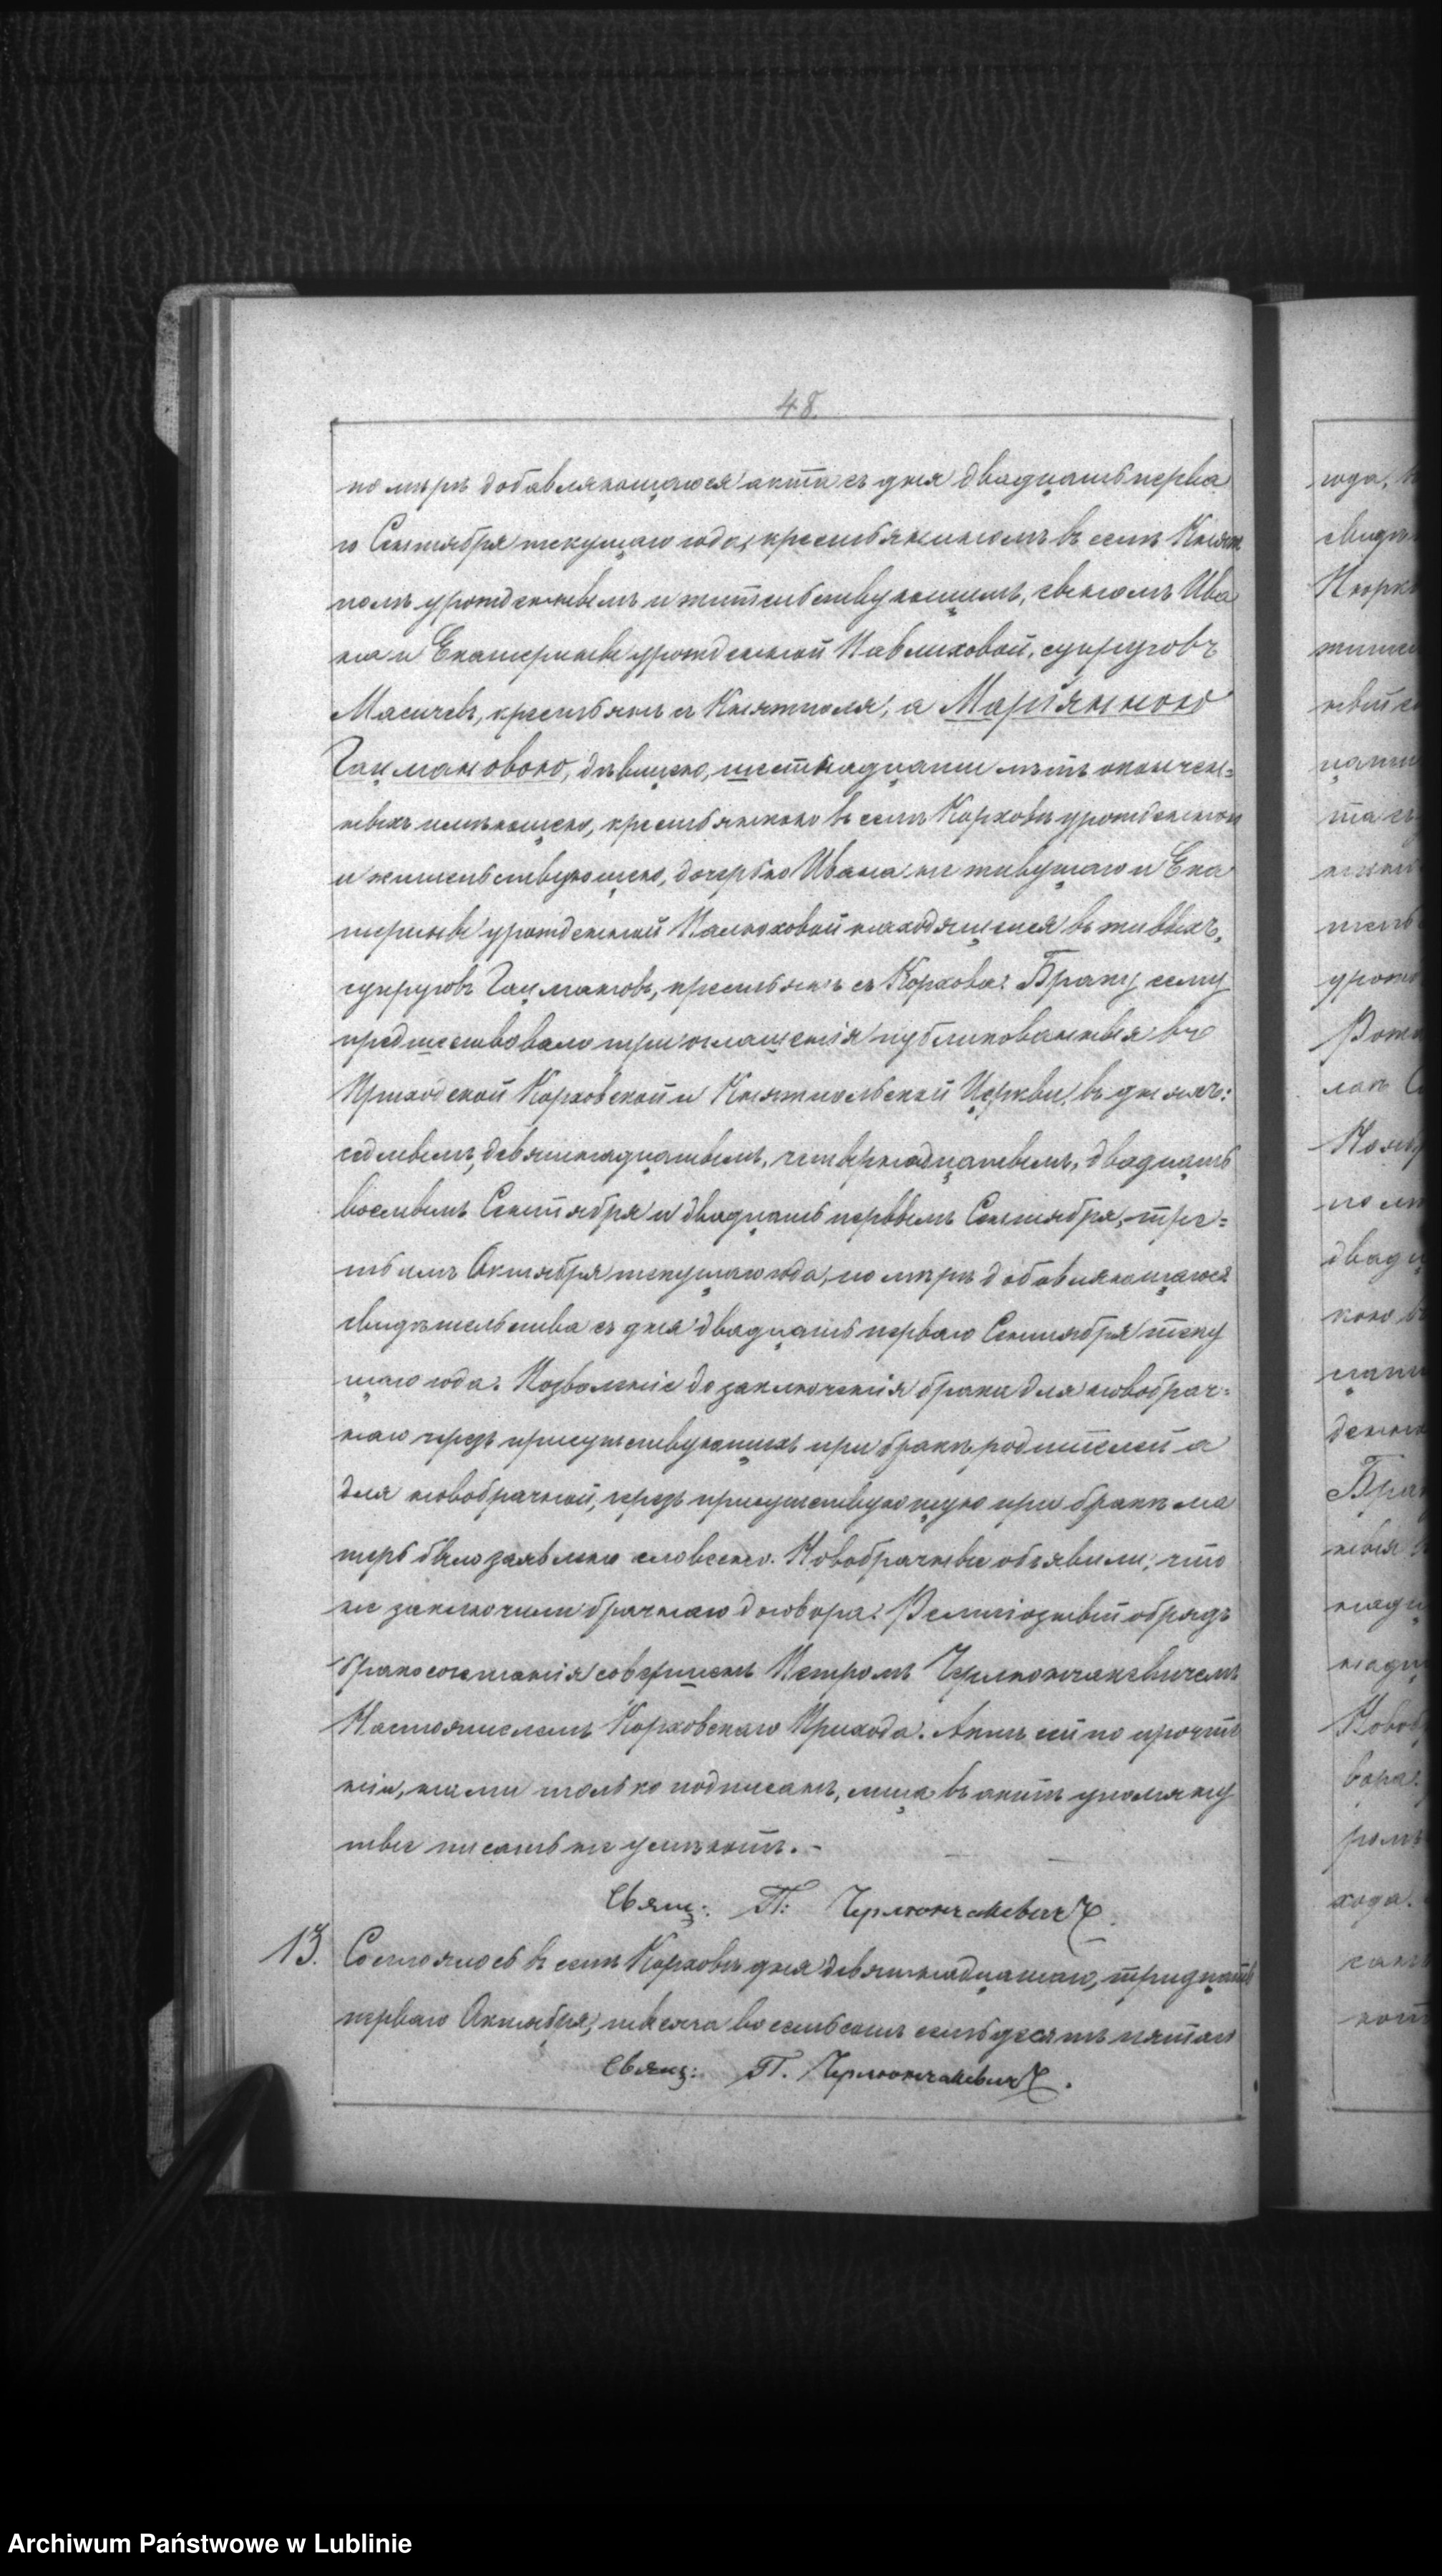 48
по мѣрѣ добавляющагося акта съ дня двадцать перва
го Сентября текущаго года, крестьяниномъ въ селѣ Княж
полѣ урожденнымъ и жительствующимъ, сыномъ Ива
на и Екатерины урожденной Павлиховой, супруговъ
Масичевъ, крестьянъ съ Княжполя, а Маріянною
Гацмановою, дѣвицею, шестнадцати лѣтъ окончен=
ныхъ имѣющею, крестьянкою въ селѣ Корховѣ урожденною
и жительствующею, дочерью Ивана не живущаго и Ека
терины урожденной Палюховой находящейся въ живыхъ,
супруговъ Гацмановъ, крестьянъ съ Корхова. Браку сему
предшествовало три оглашенія публикованныя въ
Приходской Корховской и Княжпольской Церкви, въ дняхъ:
седмымъ, девятнадцатымъ, четырнадцатымъ, двадцать
восмымъ Сентября и двадцать первымъ Сентября, тре=
тьимъ Октября текущаго года, по мѣрѣ добавляющагося
свидѣтельства съ дня двадцать перваго Сентября теку
щаго года. Позволеніе до заключенія брака для новобрач=
наго чрезъ присутствующихъ при бракѣ родителей а
для новобрачной, чрезъ присутствующую при бракѣ ма
терь было заявлено словесно. Новобрачные объявили, что
не заключили брачнаго договора. Религіозный обрядъ
бракосочетанія совершенъ Петромъ Чермончакевичемъ
Настоятелемъ Корховскаго Прихода. Актъ сей по прочте
ніи, нами только подписанъ, лица въ актѣ упомяну
тые писать не умѣютъ. -
Свящ: П: Чермончакевичъ.
13. Состоялось въ селѣ Корховѣ дня девятнадцатаго, тридцать
перваго Октября, тысяча восемьсотъ семьдесятъ пятаго
Свящ: П. Чермончакевичъ.
года,
Archiwum Państwowe w Lublinie